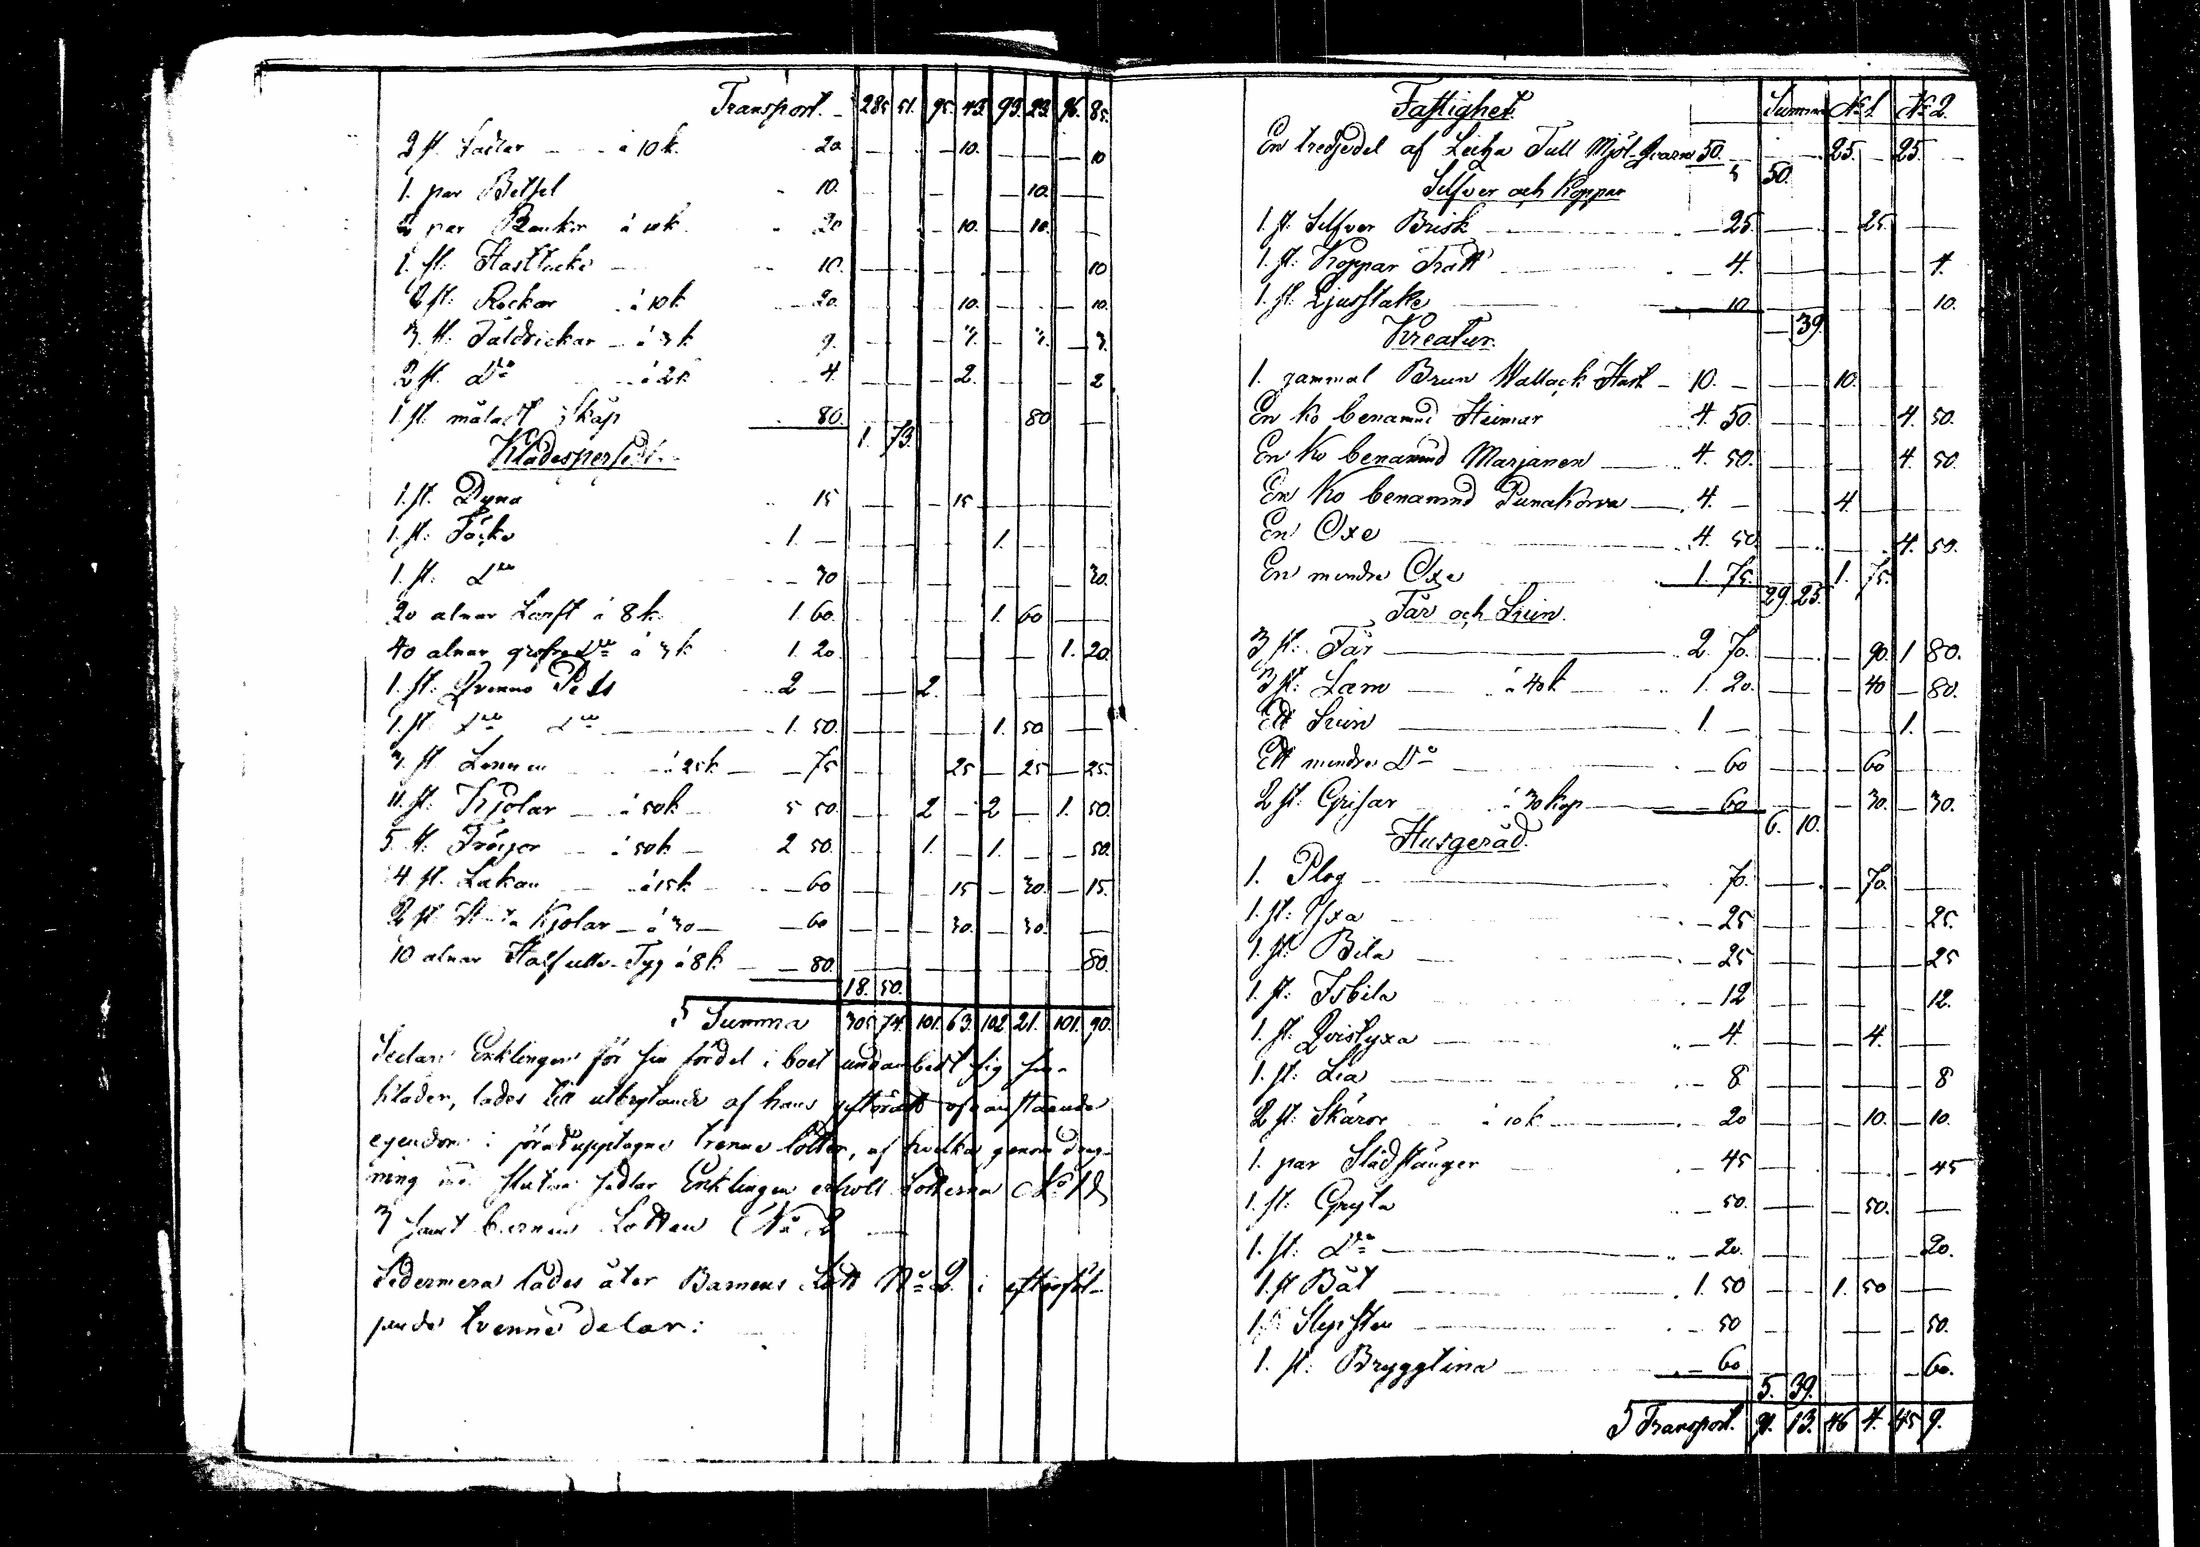 Transport. 285 51. 95. 43. 93. 23. 96. 85.
2 st. á 10 k. 20 10. 10
1. par Betsel 10. 10.
2 par á 10k. 20 10. 10.
1. st. 10. 10
2 st: Rockar á 10 k 20. 10. 10.
3. st. á 3 k 9. 3. 3. 3.
2 st. Do á 2k 4. 2. 2
1. st måladt Skåp 80. 80
1. 73.
Klädespersedlar
1. st. Dyna 15 15
1. st: Täcke 1. 1.
1. st: Do 30 30.
20 alnar Lärft á 8 k. 1. 60. 1. 60
40 alnar gröfre Do á 3 k 1. 20. 1. 20.
1. st: Qvinno Pels 2 2.
1. st. Do Do 1. 50. 1. 50
3. st á 25 k 75 25 25 25.
11. st: Kjolar á 50k 5 50. 2 2 1. 50.
5. st. Tröijor á 50k 2 50. 1. 1. 50.
4 st. Lakan á 15 k 60 15 30. 15.
2 st Kjolar á 30 60 30. 30.
10 alnar Halfulls-Tyg á 8 k. 80. 80.
18. 50.
Summa 305 74. 101. 63. 102 21. 101. 90.
Sedan Enklingen för sin fördel i boet undanbedt sig sin
kläder, lades till utbrytande af hans giftorätt ofvanstående
egendom i förut upptagne trenne lotter, af hvilka genom drag-
ning med slutna sedlar Enklingen erholl Lotterna No 1 &
3 samt barnen Lotten No 2
Sedermera lades åter Barnens Lott No 2. i efterföl-
jande tvenne delar:
Fastighet. Summa No 1. No 2.
En tredjedel af Tull Mjöl-Qvarn 50. 25. 25.
50.
Silfver och Koppar
1. st. Silfver Brisk 25. 25.
1. st: Koppar Tratt 4. 4.
1. st. Ljusstake 10 10.
39.
Kreatur.
1. gammal Brun Wallack Häst 10. 10.
En ko benämnd Heimar 4. 50. 4. 50.
En Ko benämnd Marjanen 4. 50. 4. 50
En Ko benämnd Punakorva 4. 4.
En Oxe 4. 50 4. 50.
En mindre Oxe 1. 75. 1. 75.
29. 25.
Får och Svin.
3 st: Får 2. 70. 90. 1 80.
3 st: Lam á 40 k 1. 20. 40 80.
Ett Svin 1. 1.
Ett mindre Do 60 60
2 st: Grisar á 30 kop 60 30. 30.
6. 10.
Husgeråd.
1. Plog 70. 70.
1. st: Yxa 25 25.
1. st: Bila 25 25
1. st: Isbila 12 12.
1. st: Qvistyxa 4. 4.
1. st: Lia 8 8
2 st: Skäror á 10 k. 20 10. 10.
1. par Slädstänger 45 45
1. st: Gryta 50. 50.
1. st: Do 20. 20.
1. st Båt 1. 50 1. 50
1. Slipsten 50 50.
1. st: Bryggtina 60 60.
5. 39.
Transport. 91. 13. 46 4. 45 9.